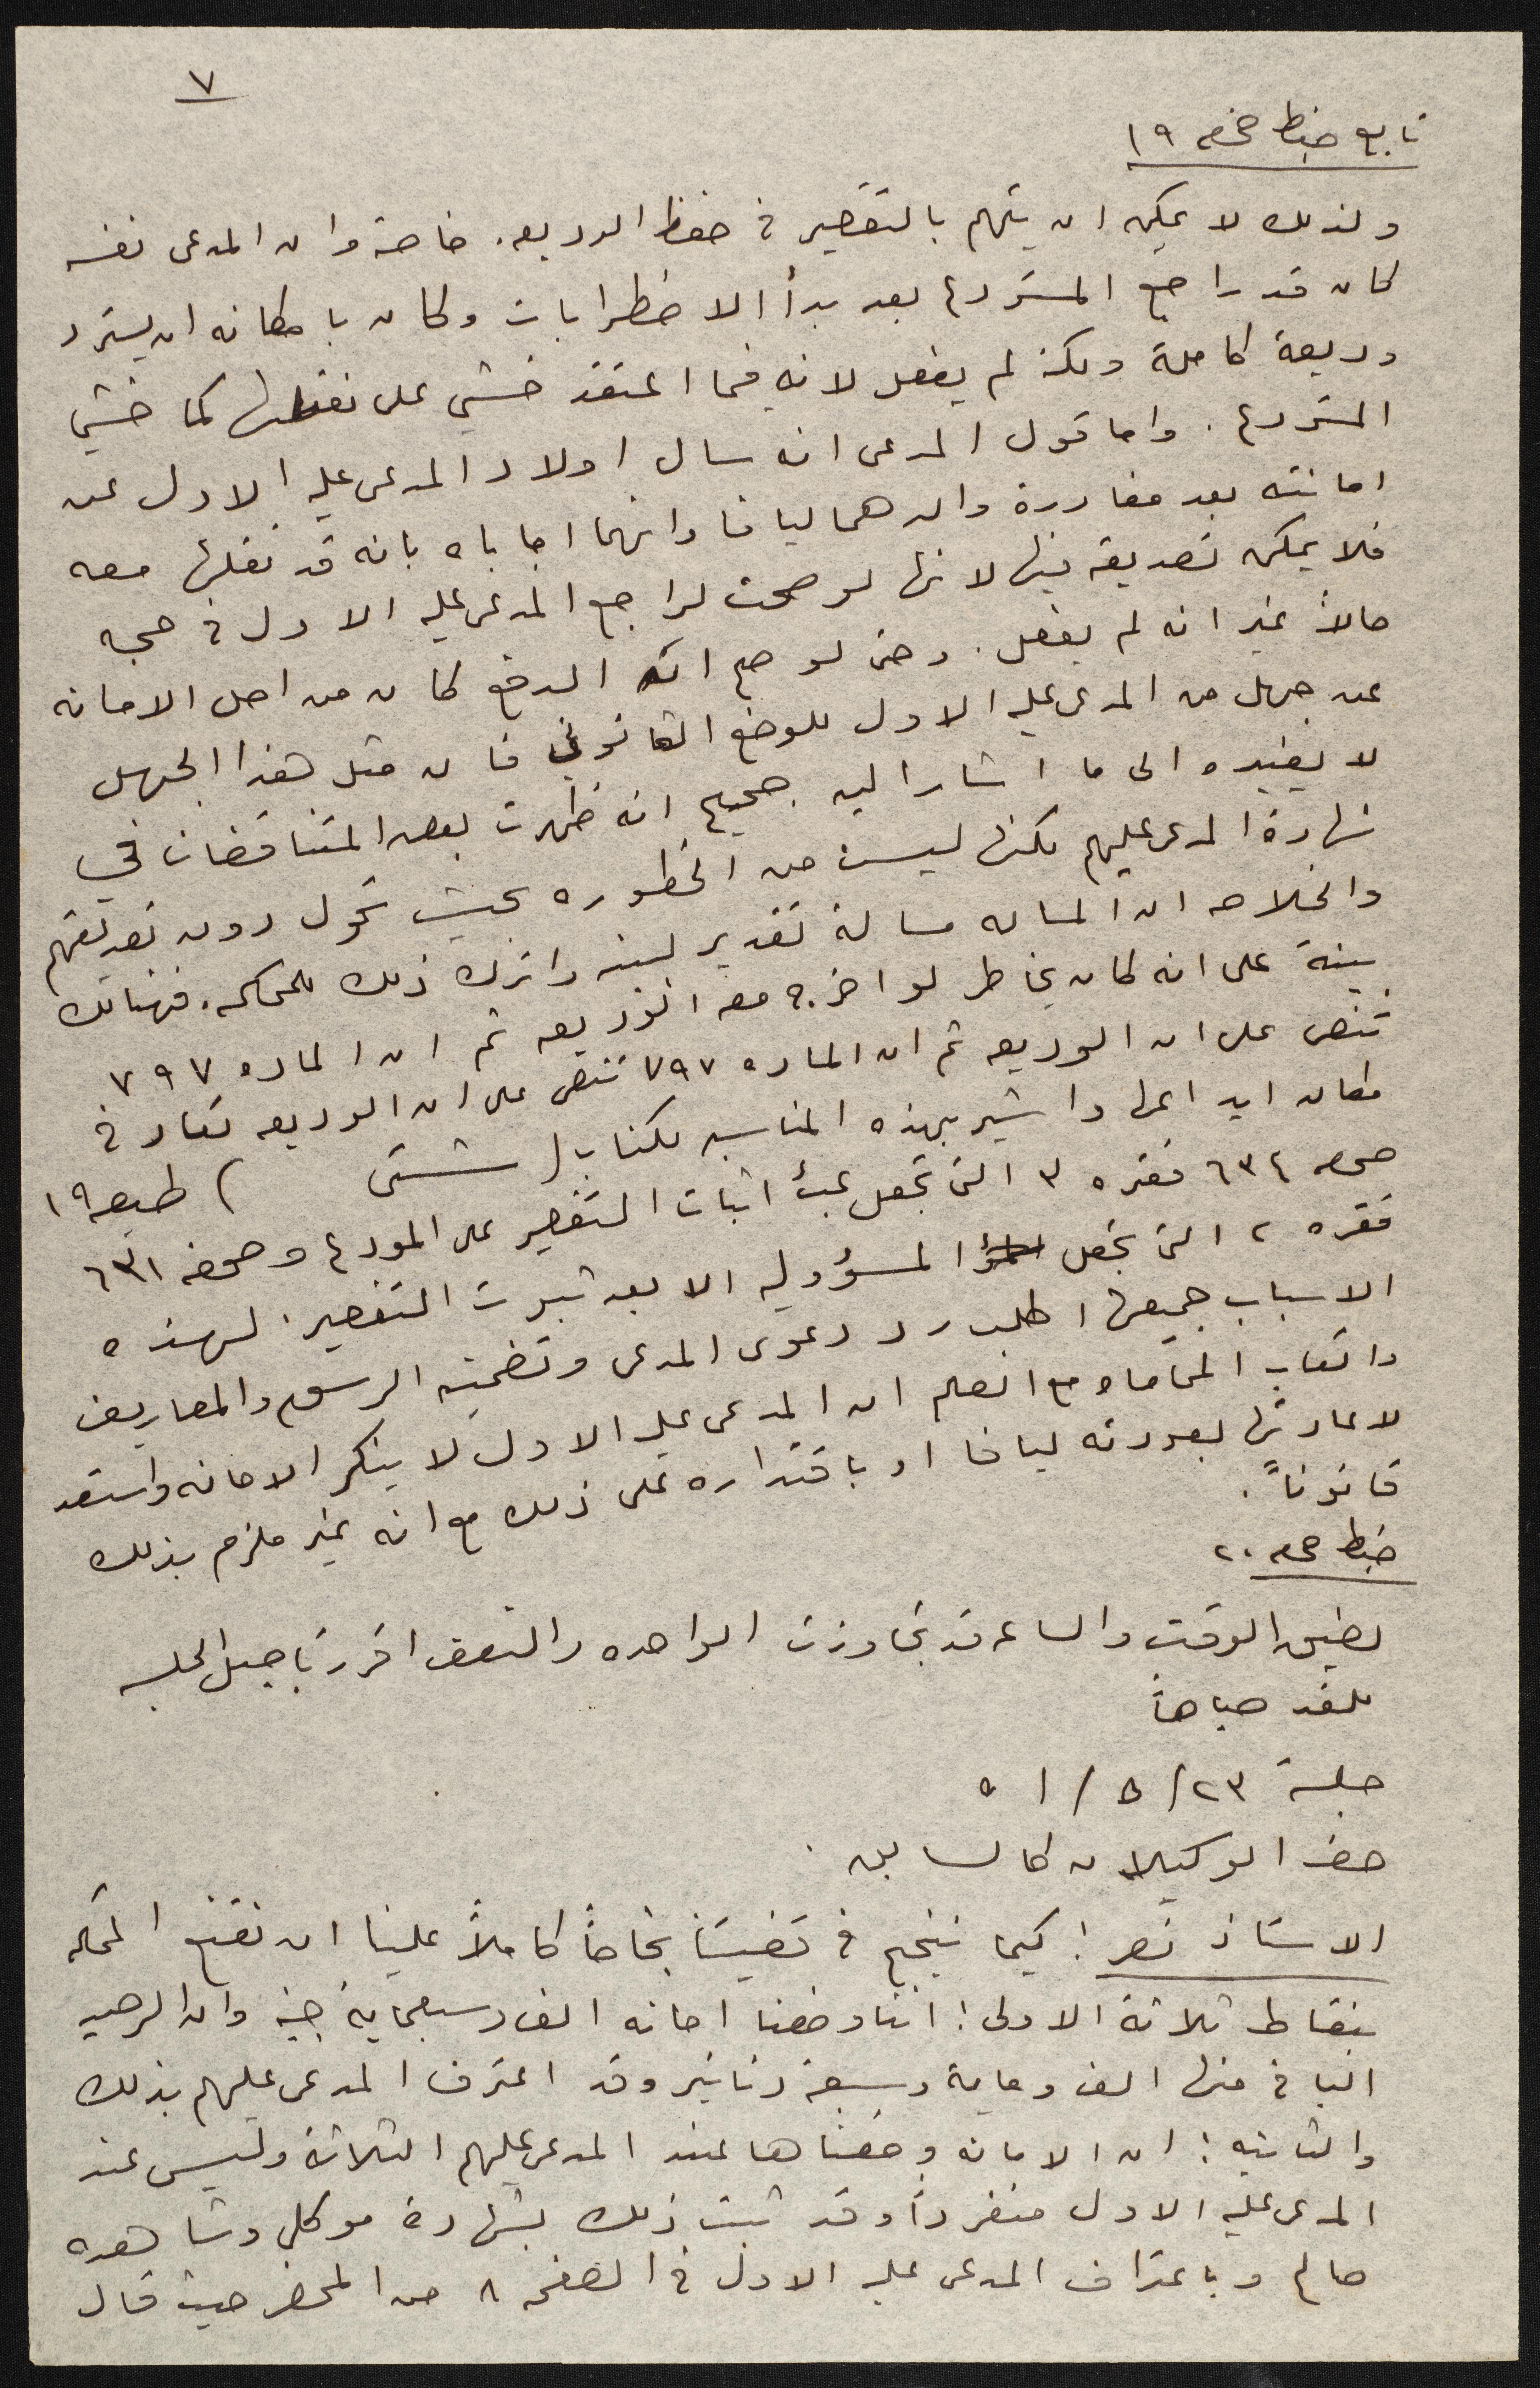 ٧
تابع ضبط صفحه ١٩
ولذلك لا يمكن ان يتهم بالتقصير في حفظ الوديعه. خاصة وان المدعى نفسه
كان قد راجع المستودع بعد بدأ الاضطرابات وكان بامكانه ان يسترد
وديعة كاملة ولكنه لم يفعل لانه فيما اعتقد خشي على نقلها كما خشي
المستودع. واما قول المدعى انه سال اولاد المدعى عليه الاول عن
امانته بعد مغادرة والدهما ليافا وانهما اجاباه بانه قد نقلها معه
فلا يمكن تصديقه فيها لانها لو صحت لراجع المدعى عليه الاول في حجه
حالاً غير انه لم يفعل. وحتى لو صح ان الدفع كان من اصل الامانه
عن جهل من المدعى عليه الاول للوضع القانوني فان مثل هذا الجهل
لا يفيده الى ما اشار اليه. صحيح انه ظهرت بعض المتناقضات في
شهادة المدعى عليهم لكنها ليست من الخطوره بحيث تحول دون تصديقهم
والخلاصه ان المساله مسالة تقدير بينه واترك ذلك للمحكمه. فهنالك
بينة على انه كان يخاطر لو اخرج معه الوديعه ثم ان الماده ٧٩٧
تنص على ان الوديعه ثم ان الماده ٧٩٧ تنص على ان الوديعه تعاد في
مكان ايداعها واشير بهذه المناسبه لكتاب ( شتى ) طبعه ١٩
صحفه ٦٣٤ فقره ٣ التي تجعل عبأ اثبات التقصير على المودع وصحفه ٦٣١
فقره ٢ التي تجعل المسؤوليه الا بعد ثبوت التقصير. لهذه
الاسباب جميعها اطلب رد دعوى المدعى وتضمينه الرسوم والمصاريف
واتعاب المحاماه مع العلم ان المدعى عليه الاول لا ينكر الامانه واستعد
لاعادتها بعودته ليافا او باقتداره على ذلك مع انه غير ملزم بذلك
قانوناً.
ضبط صحفه ٢٠
لضيق الوقت والساعه قد تجاوزت الواحده والنصف اقرر تاجيل الجلسه
للغد صباحاً
جلسة ٢٣/٥/٥١
حضر الوكيلان كالسابق.
الاستاذ نصر: كيما ننجح في قضيتنا نجاحاً كاملاً علينا ان نقنع المحكمه
بنقاط ثلاثة الاولى: اننا وضعنا امانه الف وسبعماية جنيه وان الرصيد
الباقي منها الف وماية وسبعة دنانير وقد اعترف المدعى عليهم بذلك
والثانيه: ان الامانه وضعناها عند المدعى عليهم الثلاثة وليس عند
المدعى عليه الاول منفرداً وقد ثبت ذلك بشهادة موكلي وشاهده
صالح وباعتراف المدعى عليه الاول في الصفحه ٨ من المحضر حيث قال